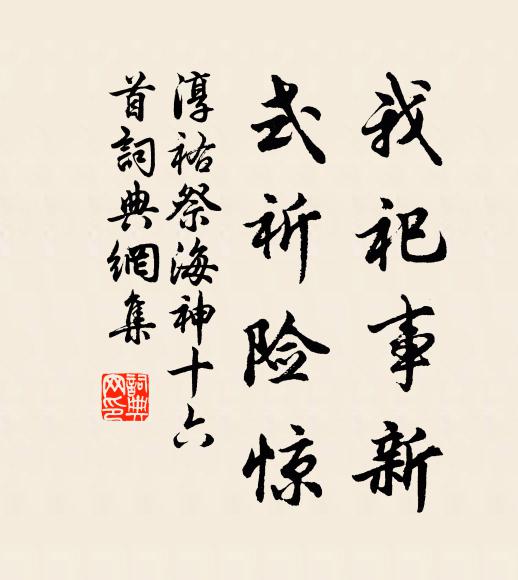 我祀事新
式祈险惊
淳祐祭海神十六
首詞典網集
詞典
网印